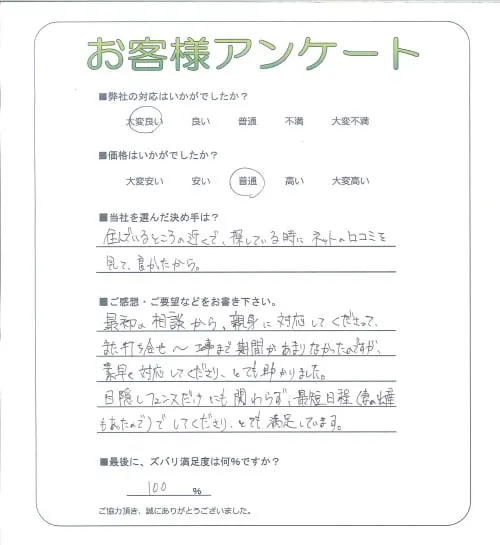 お客様アンケート
■弊社の対応はいかがでしたか？
大変良い 良い 普通 不満 大変不満
■価格はいかがでしたか？
大変安い 安い 普通 高い 大変高い
■当社を選んだ決め手は？
住んでいるところの近くで、探している時にネットの口コミを
見て、良かったから。
■ご感想・ご要望などをお書き下さい。
最初の相談から、親身に対応してくださって、
また打ち合せ～工事まで期間があまりなかったのですが、
素早く対応してくださり、とても助かりました。
目隠しフェンスだけにも関わらず、最短日程(妻の出産
もあったので)でしてくださり、とても満足しています。
■最後に、ズバリ満足度は何%ですか？
100 %
ご協力頂き、誠にありがとうございました。